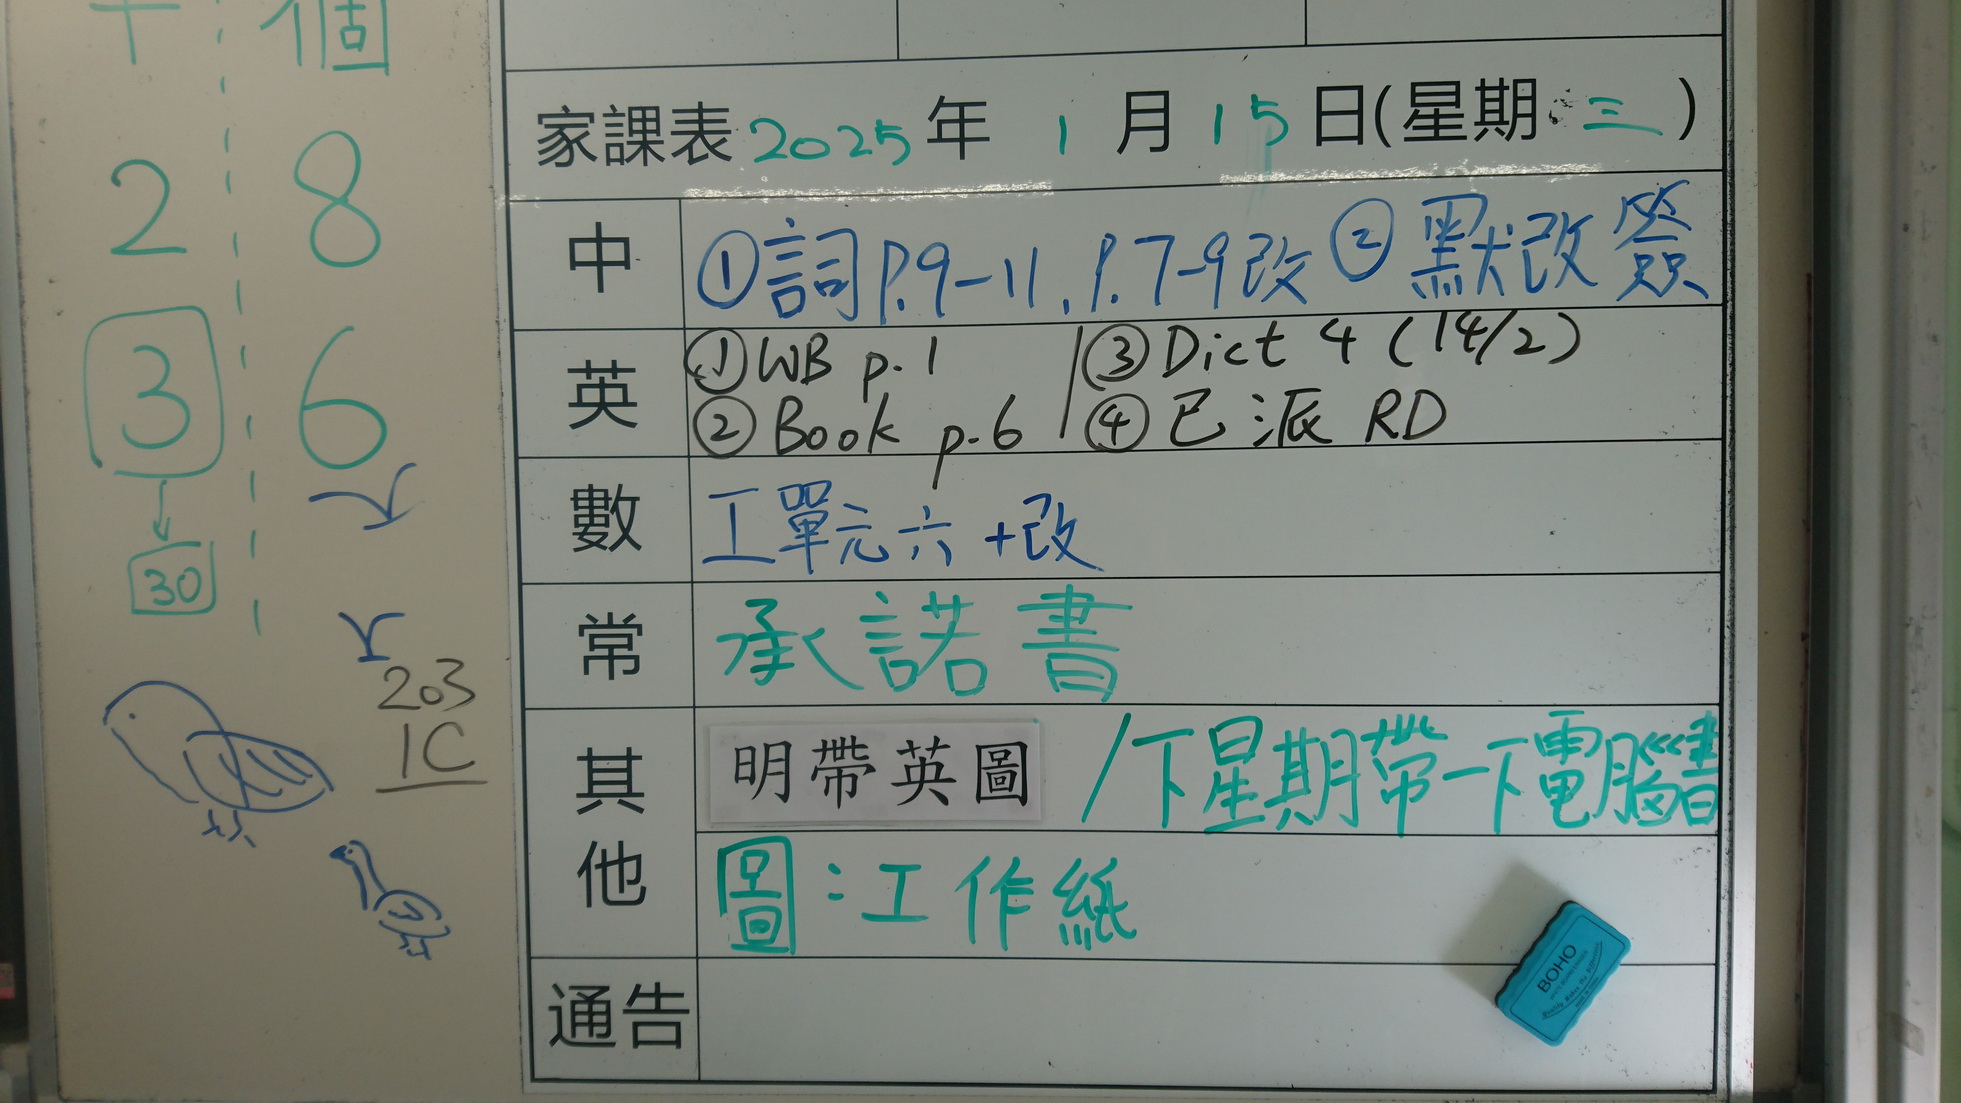 個
2 8
3 6
30
203
1C
家課表 2025 年 1 月 15 日(星期 三 )
中 ①詞P.9-11, P.7-9改 ②默改簽
英 ①WB p.1 / ③Dict 4 (14/2)
②Book p.6 / ④已派 RD
數 工單元六 +改
常 承諾書
其他 明帶英圖 /下星期帶一下電腦書
圖:工作紙
通告
BOHO